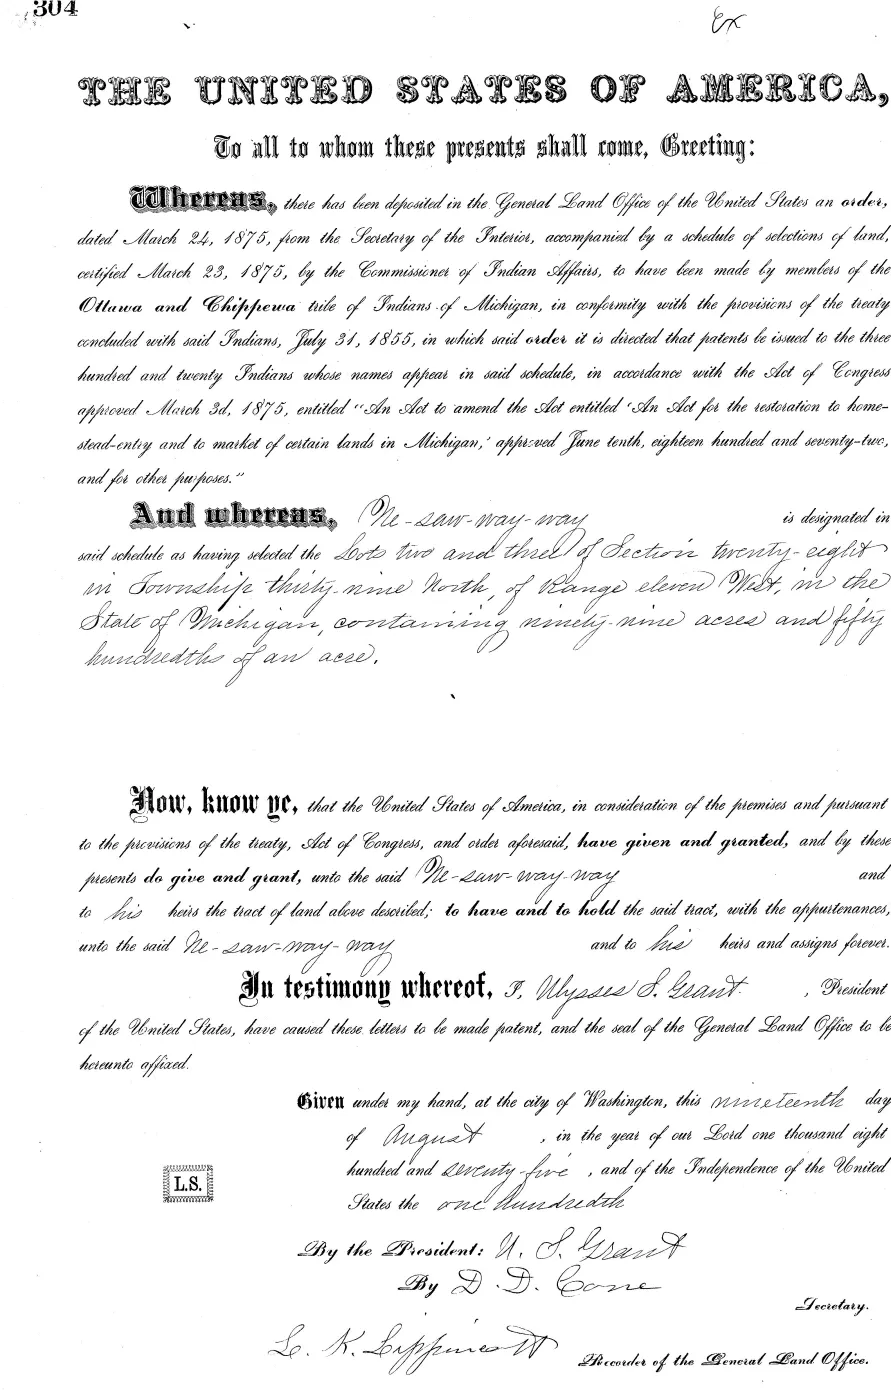 304
Ex
THE UNITED STATES OF AMERICA,
To all to whom these presents shall come, Greeting:
Whereas, there has been deposited in the General Land Office of the United States an order,
dated March 24, 1875, from the Secretary of the Interior, accompanied by a schedule of selections of land,
certified March 23, 1875, by the Commissioner of Indian Affairs, to have been made by members of the
Ottawa and Chippewa tribe of Indians of Michigan, in conformity with the provisions of the treaty
concluded with said Indians, July 31, 1855, in which said order it is directed that patents be issued to the three
hundred and twenty Indians whose names appear in said schedule, in accordance with the Act of Congress
approved March 3d, 1875, entitled "An Act to amend the Act entitled 'An Act for the restoration to home-
stead-entry and to market of certain lands in Michigan,' approved June tenth, eighteen hundred and seventy-two,
and for other purposes."
And whereas, Ne-saw-way-way is designated in
said schedule as having selected the Lots two and three of Section twenty-eight
in Township thirty-nine North, of Range eleven West, in the
State of Michigan, containing ninety-nine acres and fifty
hundredths of an acre.
Now, know ye, that the United States of America, in consideration of the premises and pursuant
to the provisions of the treaty, Act of Congress, and order aforesaid, have given and granted, and by these
presents do give and grant, unto the said Ne-saw-way-way and
to his heirs the tract of land above described; to have and to hold the said tract, with the appurtenances,
unto the said Ne-saw-way-way and to his heirs and assigns forever.
In testimony whereof, I, Ulysses S. Grant, President
of the United States, have caused these letters to be made patent, and the seal of the General Land Office to be
hereunto affixed.
Given under my hand, at the city of Washington, this nineteenth day
of August, in the year of our Lord one thousand eight
hundred and seventy-five, and of the Independence of the United
States the one hundredth
L.S.
By the President: U. S. Grant
By D. D. Cone
Secretary.
L. K. Lippincott
Recorder of the General Land Office.